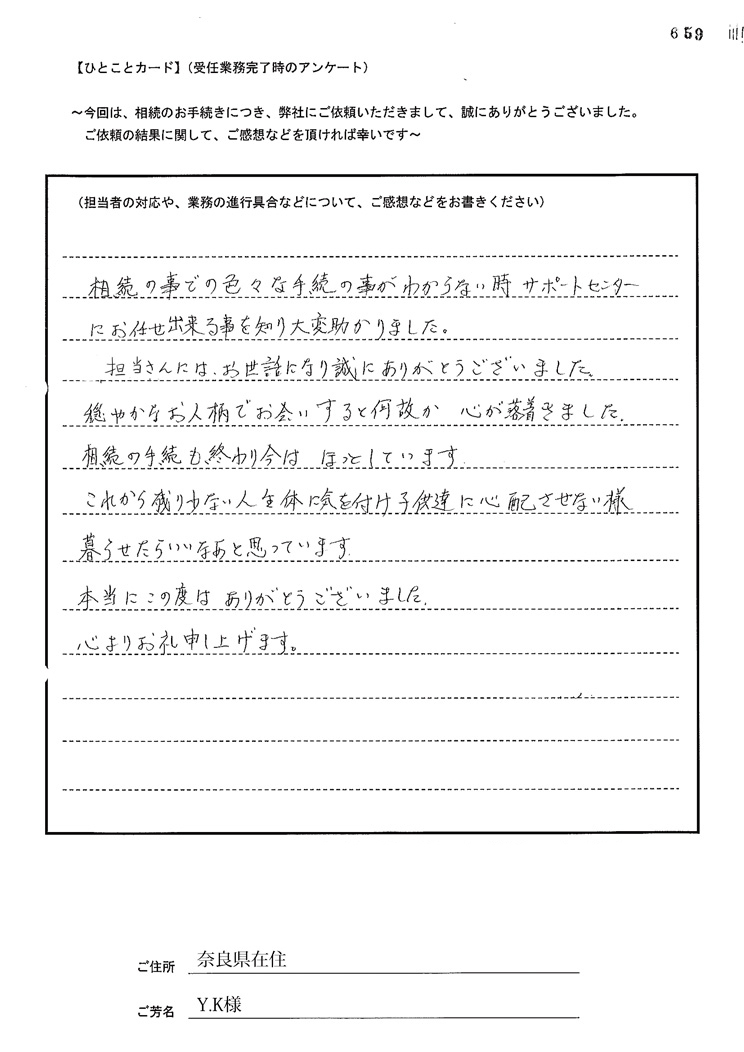 659
【ひとことカード】（受任業務完了時のアンケート）
～今回は、相続のお手続きにつき、弊社にご依頼いただきまして、誠にありがとうございました。
ご依頼の結果に関して、ご感想などを頂ければ幸いです～
（担当者の対応や、業務の進行具合などについて、ご感想などをお書きください）
相続の事での色々な手続の事がわからない時サポートセンター
にお任せ出来る事を知り大変助かりました。
担当さんには、お世話になり誠にありがとうございました。
穏やかなお人柄でお会いすると何故か 心が落着きました。
相続の手続も終わり今は ほっとしています
これから残り少ない人生体に気を付け子供達に心配させない様
暮らせたらいいなあと思っています
本当にこの度は ありがとうございました。
心よりお礼申し上げます。
ご住所 奈良県在住
ご芳名 Y.K様